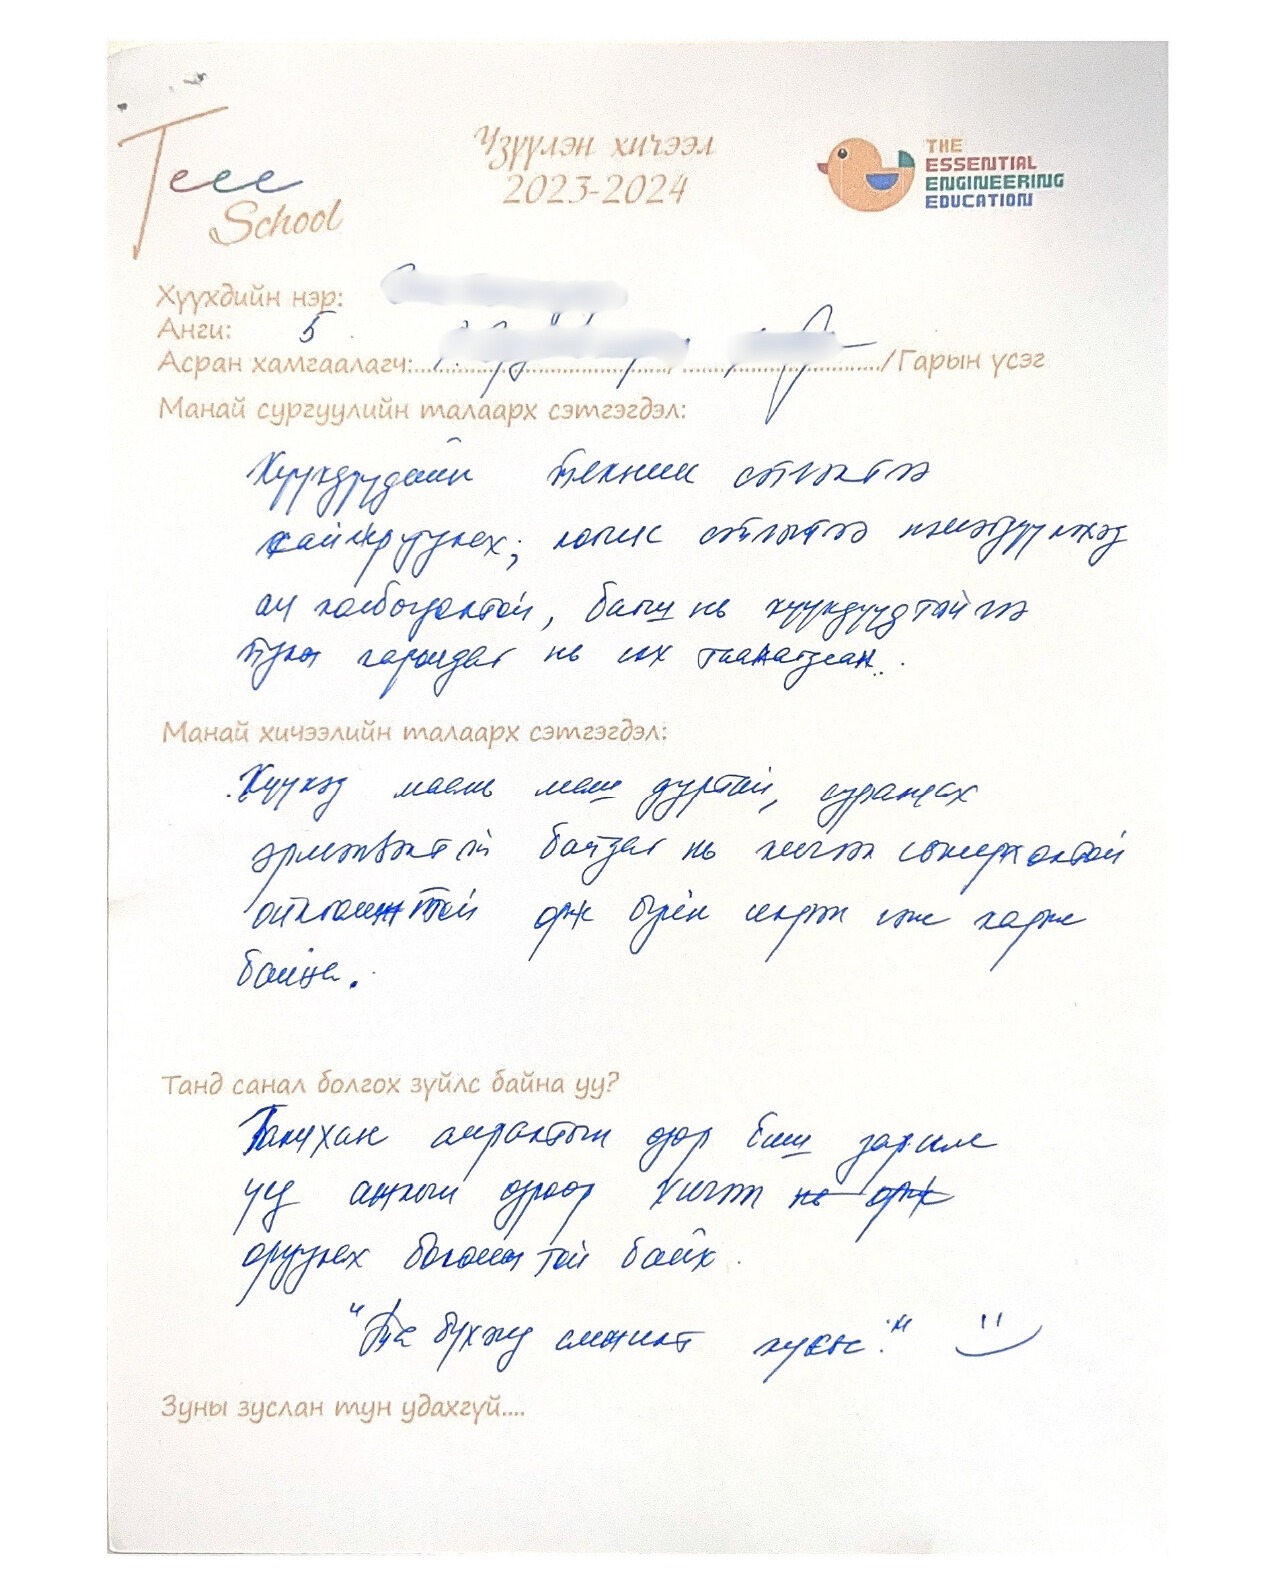 Teee
School
Үзүүлэн хичээл
2023-2024
THE
ESSENTIAL
ENGINEERING
EDUCATION
Хүүхдийн нэр:
Анги: 5
Асран хамгаалагч: /Гарын үсэг
Манай сургуулийн талаарх сэтгэгдэл:
Хүүхдүүдийн техник сэтгэлгээ
сайжруулах, логик сэтгэлгээ нэмэгдүүлэхэд
ач холбогдолтой, багш нь хүүхдүүдтэйгээ
тулж харьцдаг нь их таалагдсан.
Манай хичээлийн талаарх сэтгэгдэл:
Хүүхэд маань маш дуртай, суралцах
эрмэлзэлтэй байдаг нь хичээл сонирхолтой
ойлгомжтой орж бүрэн гэж харж
байна.
Танд санал болгох зүйлс байна уу?
Ганцхан амралтын өдөр биш зарим
үед ажлын өдрөөр хичээл нь орж
оруулах боломжтой байх.
"Та бүхэнд амжилт хүсье!"
Зуны зуслан тун удахгүй....